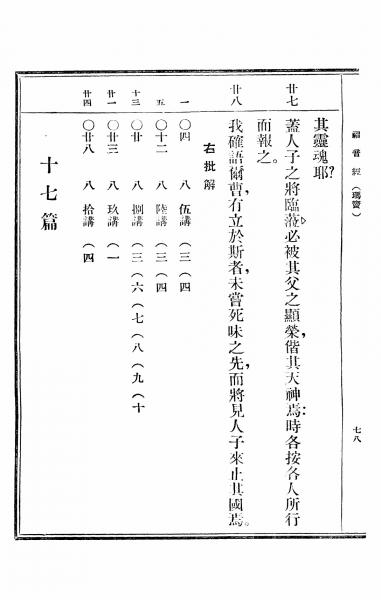 福音經(瑪竇)
七八
其靈魂耶?
廿七 蓋人子之將臨蒞,必被其父之顯榮,偕其天神焉:時各按各人所行
而報之。
廿八 我確語爾曹,有立於斯者,未嘗死味之先,而將見人子來止其國焉。
右批解
一 〇四 八 伍講(三(四
五 〇十二 八 陸講(三(四
十三 〇廿 八 捌講(三(六(七(八(九(十
廿一 〇廿三 八 玖講(一
廿四 〇廿八 八 拾講(四
十七篇